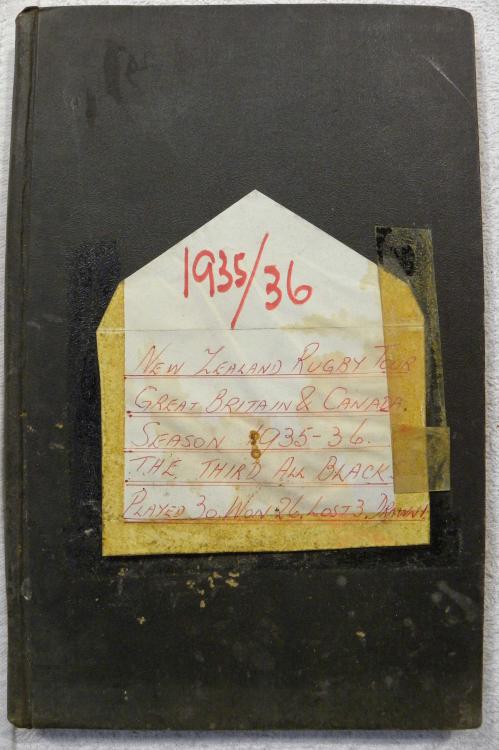 1935/36
NEW ZEALAND RUGBY TOUR
GREAT BRITAIN & CANADA.
SEASON 1935-36.
THE THIRD ALL BLACKS
PLAYED 30. WON 26. LOST 3. DRAWN 1